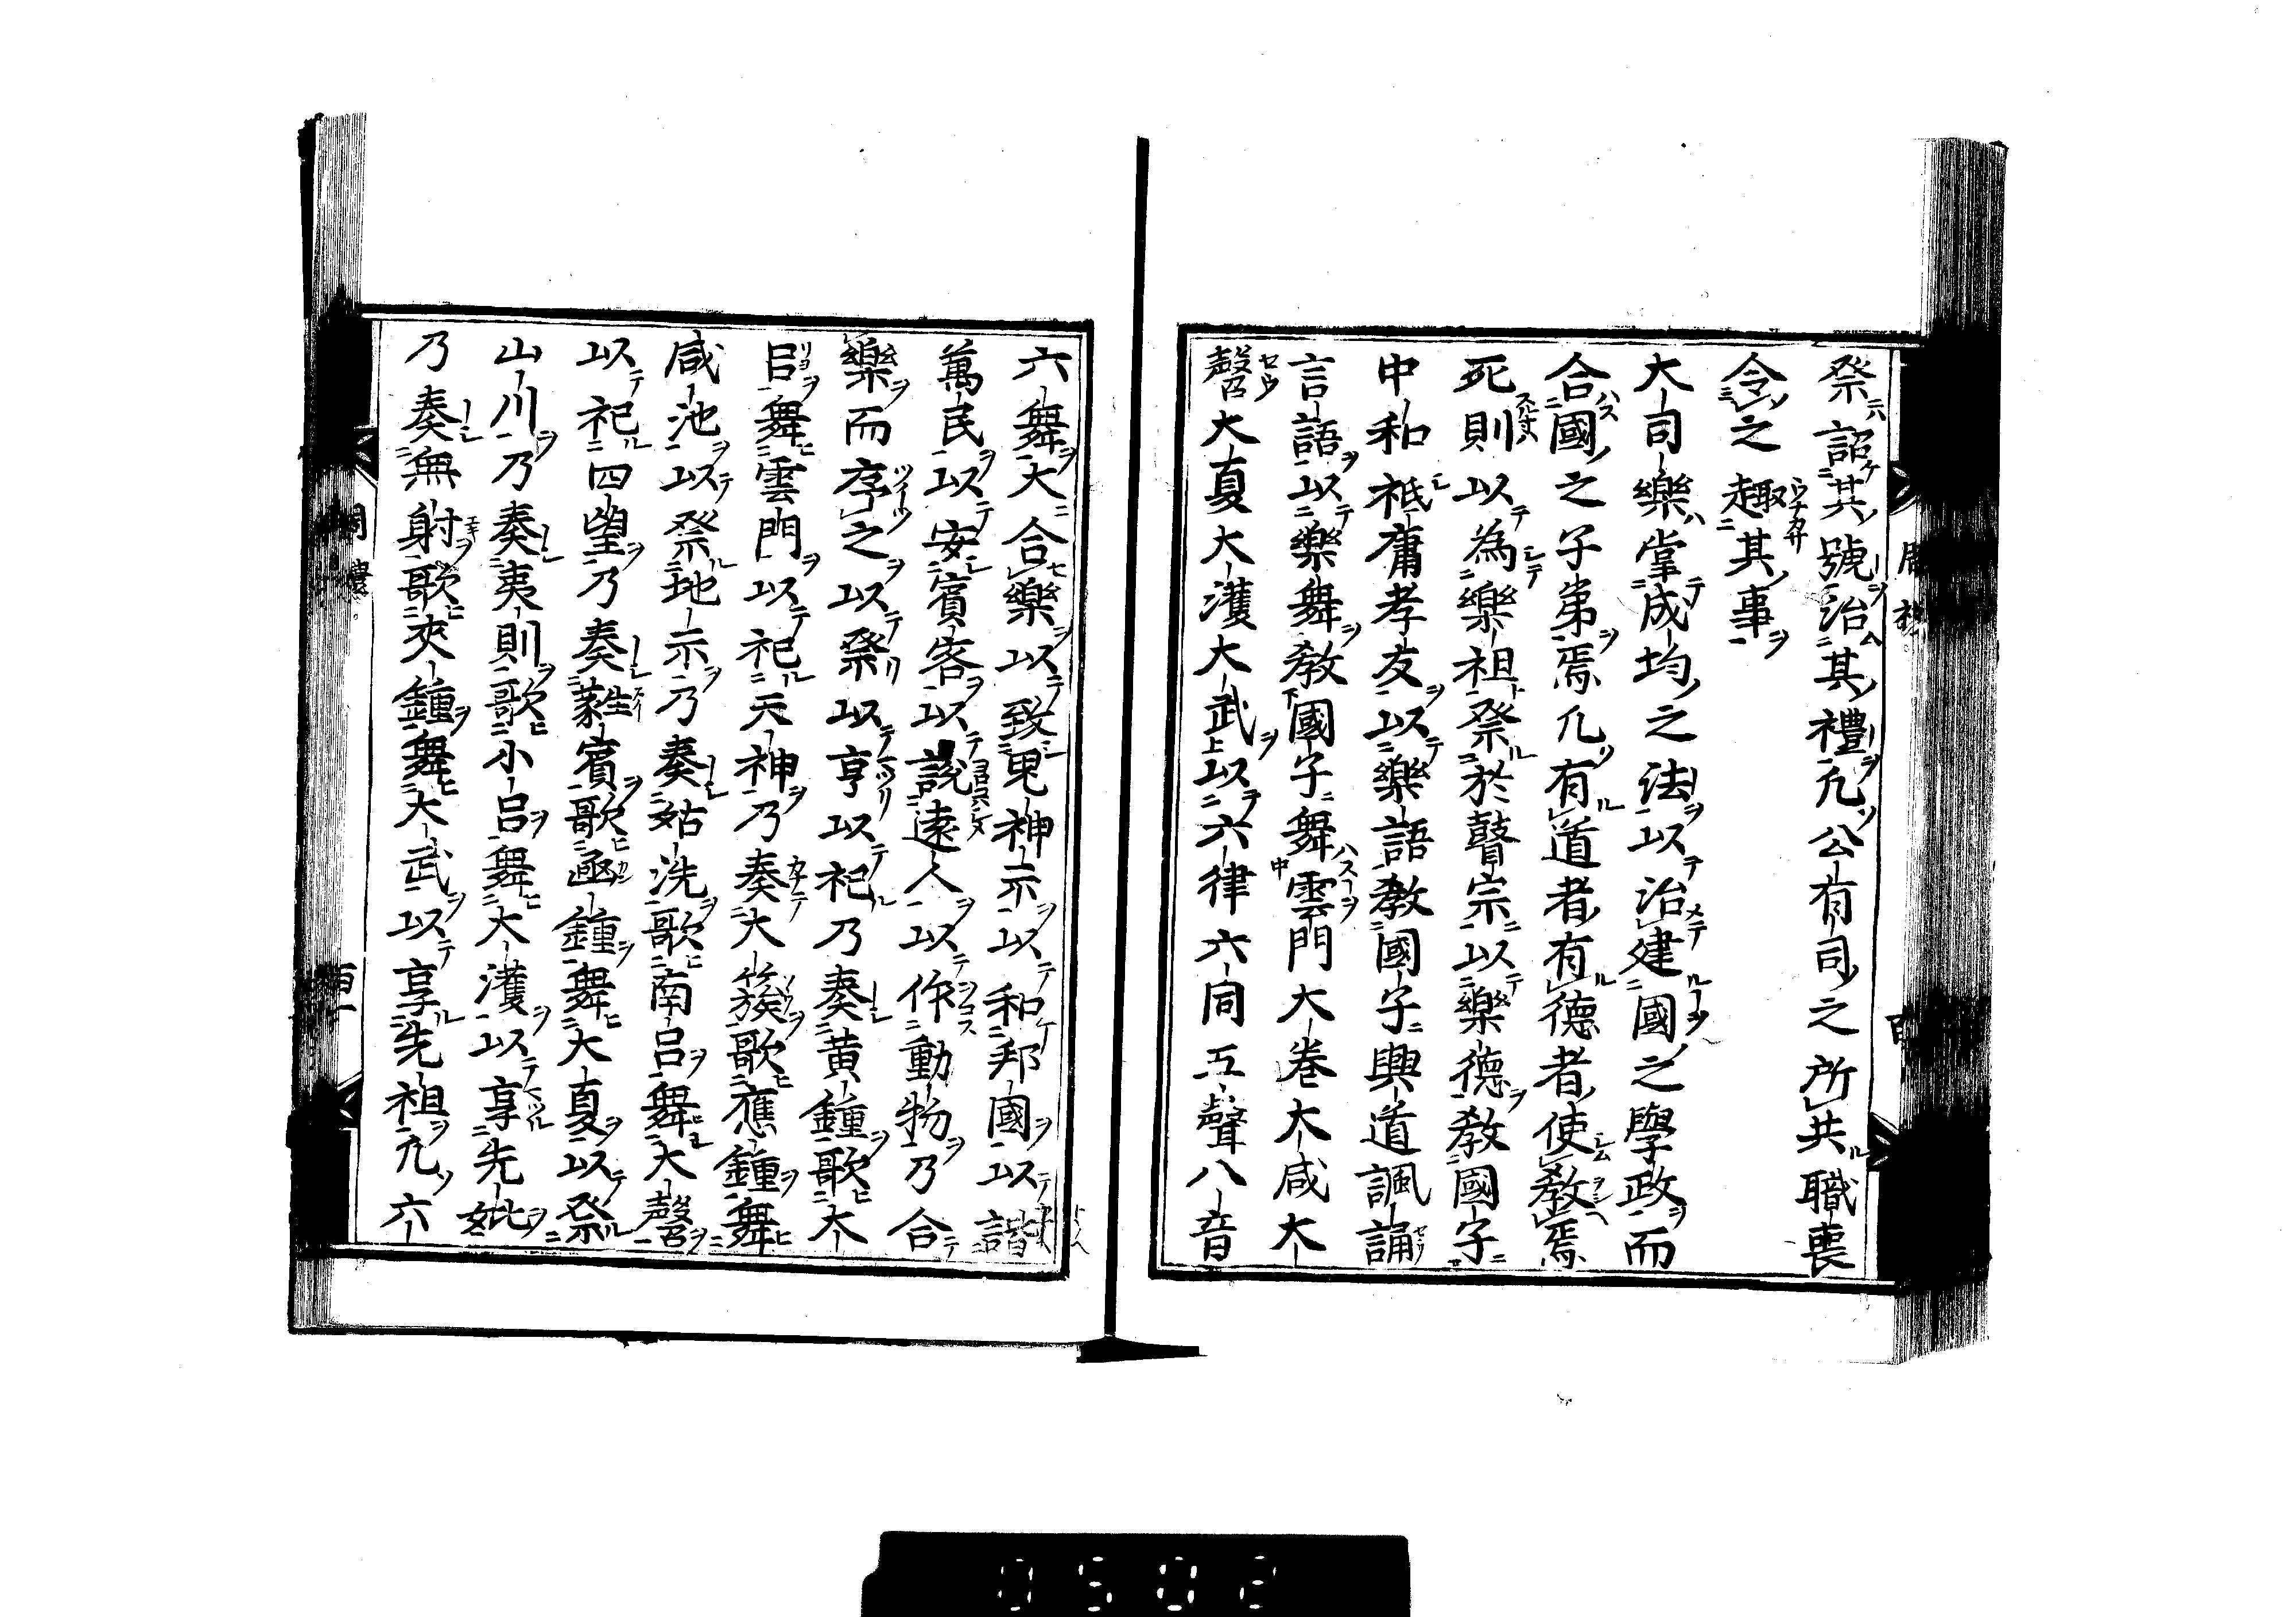 祭詔其號治其禮凢公有司之所共職喪
令之趣其事
大司樂掌成均之法以治建國之學政而
合國之子弟焉凢有道者有德者使教焉
死則以為樂祖祭於瞽宗以樂德教國子
中和祗庸孝友以樂語教國子興道諷誦
言語以樂舞教國子舞雲門大卷大咸大
㲈大夏大濩大武以六律六同五聲八音
六舞大合樂以致鬼神示以和邦國以諧
萬民以安賓客以說遠人以作動物乃合
樂而序之以祭以享以祀乃奏黃鐘歌大
呂舞雲門以祀天神乃奏大簇歌應鐘舞
咸池以祭地示乃奏姑洗歌南呂舞大㲈
以祀四望乃奏蕤賓歌函鐘舞大夏以祭
山川乃奏夷則歌小呂舞大濩以享先妣
乃奏無射歌夾鐘舞大武以享先祖凢六
周禮
0502